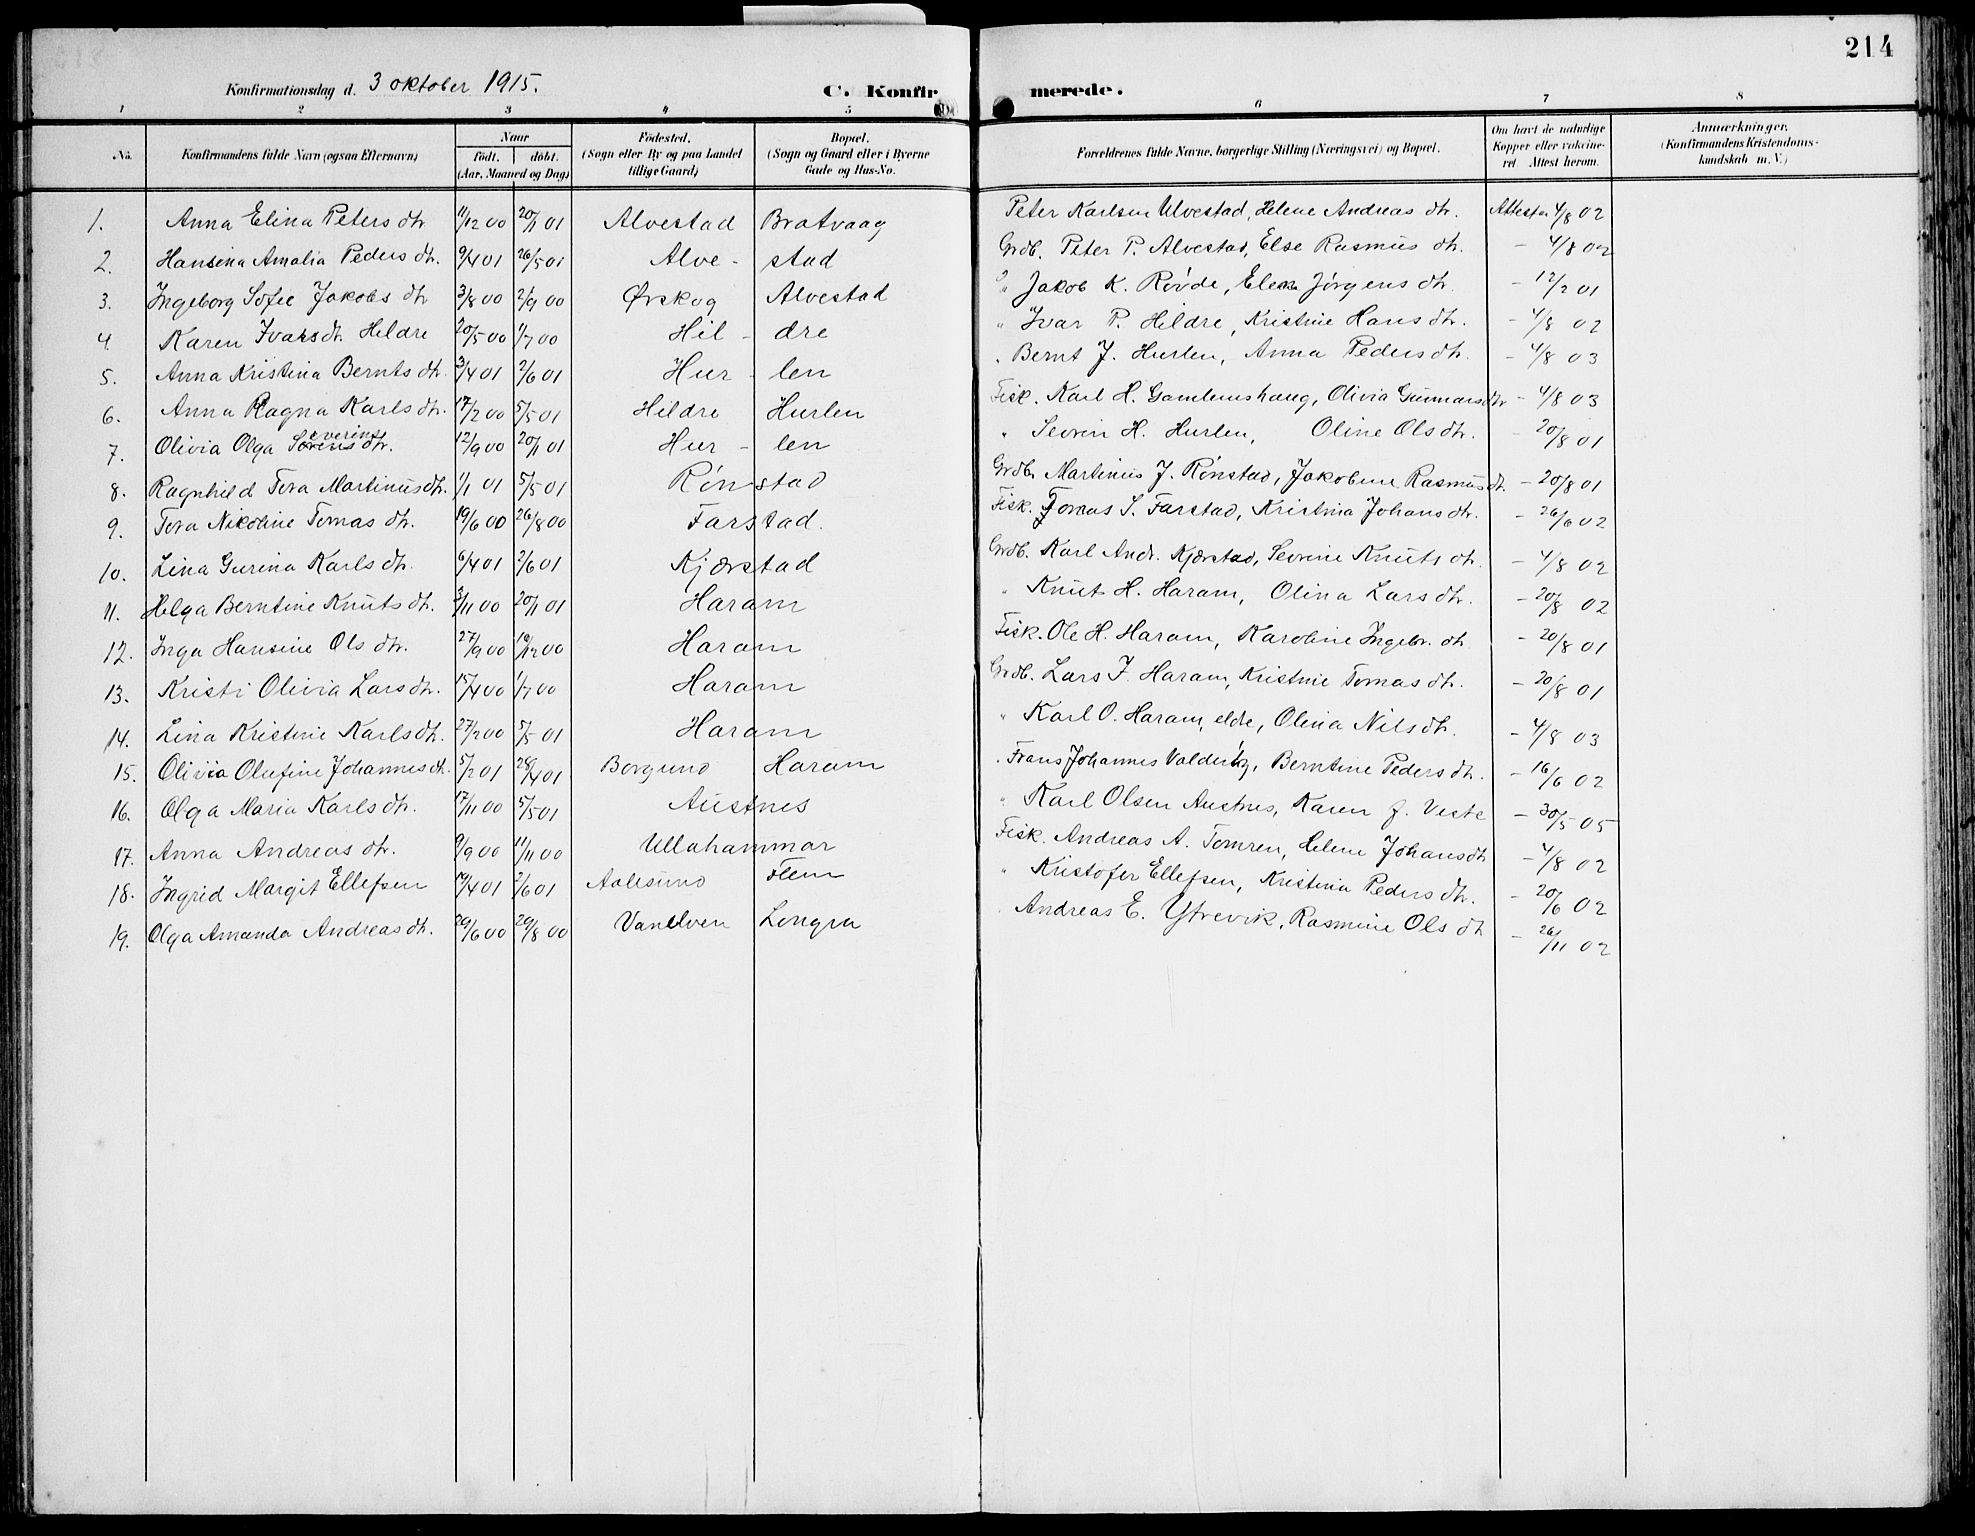 214
Konfirmationsdag d. 3 oktober 1915. C. Konfir merede.
1 2 3 4 5 6 7 8
No. Konfirmandens fulde Navn (ogsaa Efternavn) Naar født. døbt. (Aar, Maaned og Dag) Fødested. (Sogn eller By og paa Landet tillige Gaard) Bopæl. (Sogn og Gaard eller i Byerne Gade og Hus-No. Forældrenes fulde Navne, borgerlige Stilling (Næringsvei) og Bopæl. Om havt de naturlige Kopper eller vakcineret. Attest herom. Anmærkninger. (Konfirmandens Kristendomskundskab m. V.)
1. Anna Elina Peters dtr 11/12 00 20/1 01 Alvestad Bratvaag Peter Karlsen Ulvestad, Helene Andreas dtr. Attest av 4/8 02
2. Hansina Amalia Peders dtr. 9/4 01 26/5 01 Alve - stad Grdb. Peter P. Alvestad, Else Rasmus dtr. - 4/8 02
3. Ingeborg Sofie Jakobs dtr 3/8 00 2/9 00 Ørskog Alvestad " Jakob K. Røvde, Elen Jørgens dtr. - 12/2 01
4. Karen Ivarsdtr. Hildre 20/5 00 1/7 00 Hil - dre " Ivar P. Hildre, Kristine Hans dtr. - 4/8 02
5. Anna Kristina Bernts dtr. 3/4 01 2/6 01 Hur - len " Bernt J. Hurlen, Anna Peders dtr. - 4/8 03
6. Anna Ragna Karls dtr. 17/2 00 5/5 01 Hildre Hurlen Fisk. Karl H. Gamlemshaug, Olivia Gunnarsdtr - 4/8 03
7. Olivia Olga Severins dtr. 12/9 00 20/1 01 Hur - len " Sevrin H. Hurlen, Oline Ols dtr. - 20/8 01
8. Ragnhild Tora Martinusdtr. 1/1 01 5/5 01 Rønstad Grdb. Martinus J. Rønstad, Jakobine Rasmusdtr. - 20/8 01
9. Tora Nicoline Tomas dtr. 19/6 00 26/8 00 Farstad. Fisk. Tomas S. Farstad, Kristina Johans dtr. - 26/6 02
10. Lina Gurina Karls dtr. 6/4 01 2/6 01 Kjærstad Grdb. Karl Andr. Kjærstad, Sevrine Knuts dtr. - 4/8 02
11. Helga Berntine Knuts dtr. 3/11 00 20/1 01 Haram " Knut H. Haram, Olina Lars dtr. - 20/8 02
12. Inga Hansine Ols dtr. 27/9 00 16/12 00 Haram Fisk. Ole H. Haram, Karoline Ingebr. dtr - 20/8 01
13. Kristi Olivia Lars dtr. 15/4 00 1/7 00 Haram Grdb. Lars J. Haram, Kristine Tomas dtr. - 20/8 01
14. Lina Kristine Karls dtr. 27/2 00 5/5 01 Haram " Karl O. Haram, eldre, Olina Nils dtr. - 4/8 03
15. Olivia Olufine Johannes dtr. 5/2 01 28/4 01 Borgund Haram " Frans Johannes Valderøy, Berntine Peders dtr. - 16/6 02
16. Olga Maria Karls dtr. 17/11 00 5/5 01 Austnes " Karl Olsen Austnes, Karen J. Veste - 30/5 05
17. Anna Andreas dtr. 9/9 00 11/11 00 Ullahammar Fisk. Andreas A. Tomren, Helene Johansdtr - 4/8 02
18. Ingrid Margit Ellefsen 14/4 01 2/6 01 Aalesund Flem " Kristofer Ellefsen, Kristina Peders dtr. - 20/6 02
19. Olga Amanda Andreas dtr. 20/6 00 29/8 00 Vanelven Longva " Andreas E. Ytrevik, Rasmine Ols dtr - 26/11 02